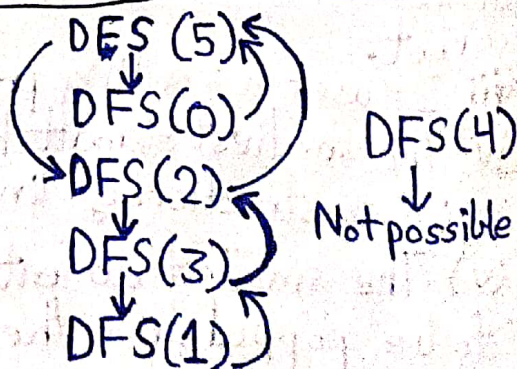 DFS (5)
DFS(0)
DFS(2)
DFS(3)
DFS(1)
DFS(4)
Not possible